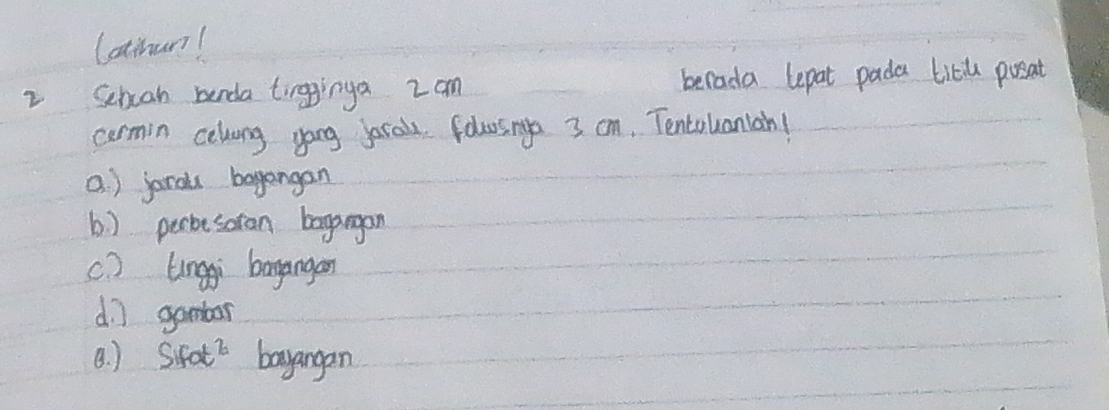 Latihan!
2 Sebuah benda tingginya 2 cm berada tepat pada titik pusat
cermin cekung yang jarak fokusnya 3 cm. Tentukanlah!
a.) jarak bayangan
b.) perbesaran bayangan
c.) tinggi bayangan
d.) gambar
e.) Sifat² bayangan